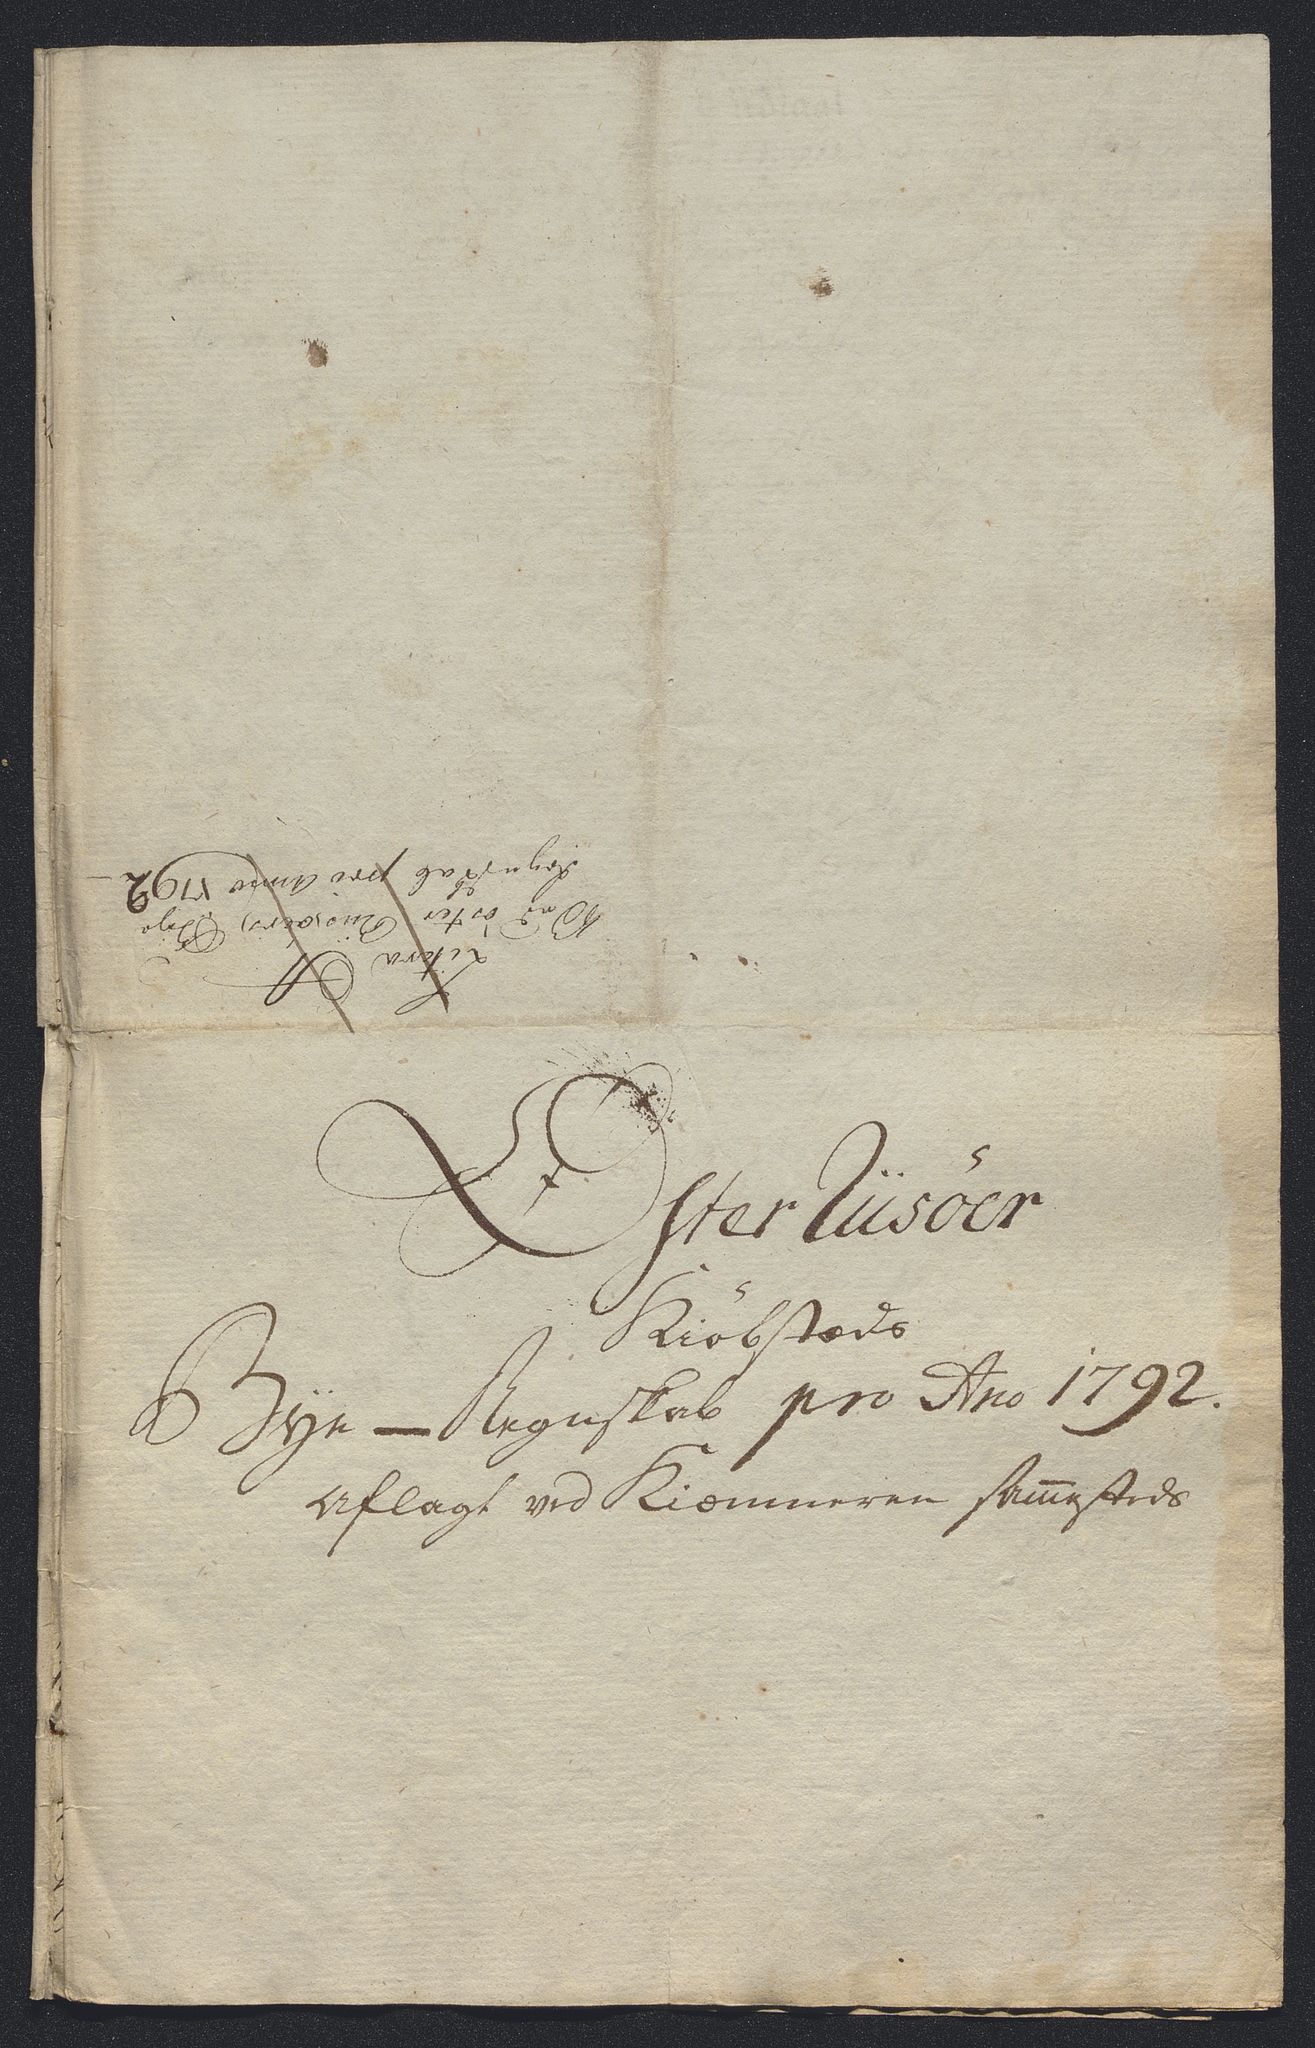 Litera A
Ved öster Riisöers Bye
Regnskab pro Anno 1792
Öster Riisöer
Kiöbstæds
Bÿe — Regnskab pro Ano 1792.
aflagt ved Kiæmneren sam̅esteds